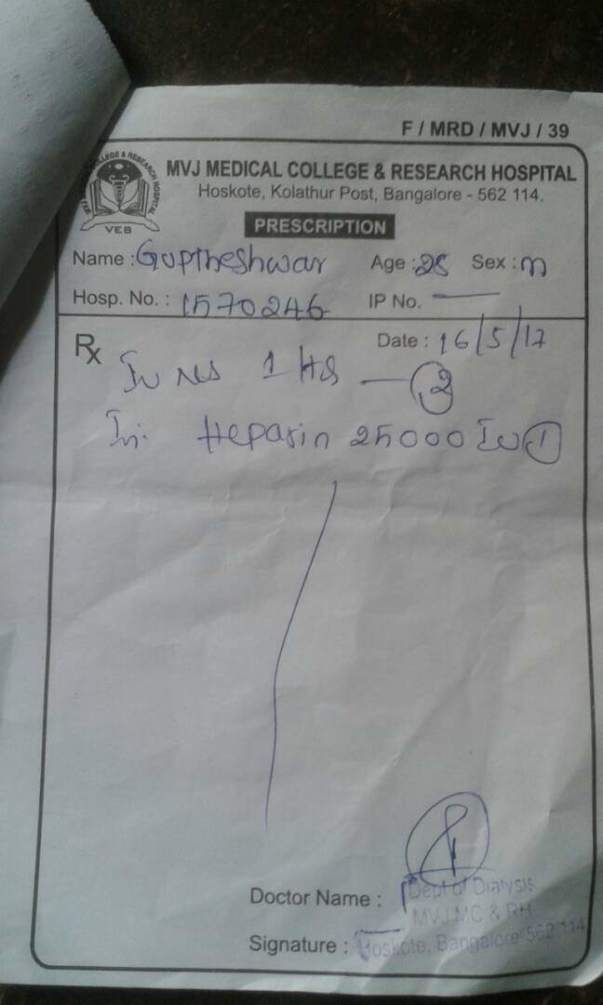 F / MRD / MVJ / 39
MVJ MEDICAL COLLEGE & RESEARCH HOSPITAL
Hoskote, Kolathur Post, Bangalore - 562 114.
VEB
PRESCRIPTION
Name : Guptheshwar Age : 28 Sex : M
Hosp. No. : 1570246 IP No. —
Rx Date : 16/5/17
NS 1 — 2
Inj. Heparin 25000 IU 1
Doctor Name : Dept of Dialysis
MVJ MC & RH
Signature : Hoskote, Bangalore-562 114